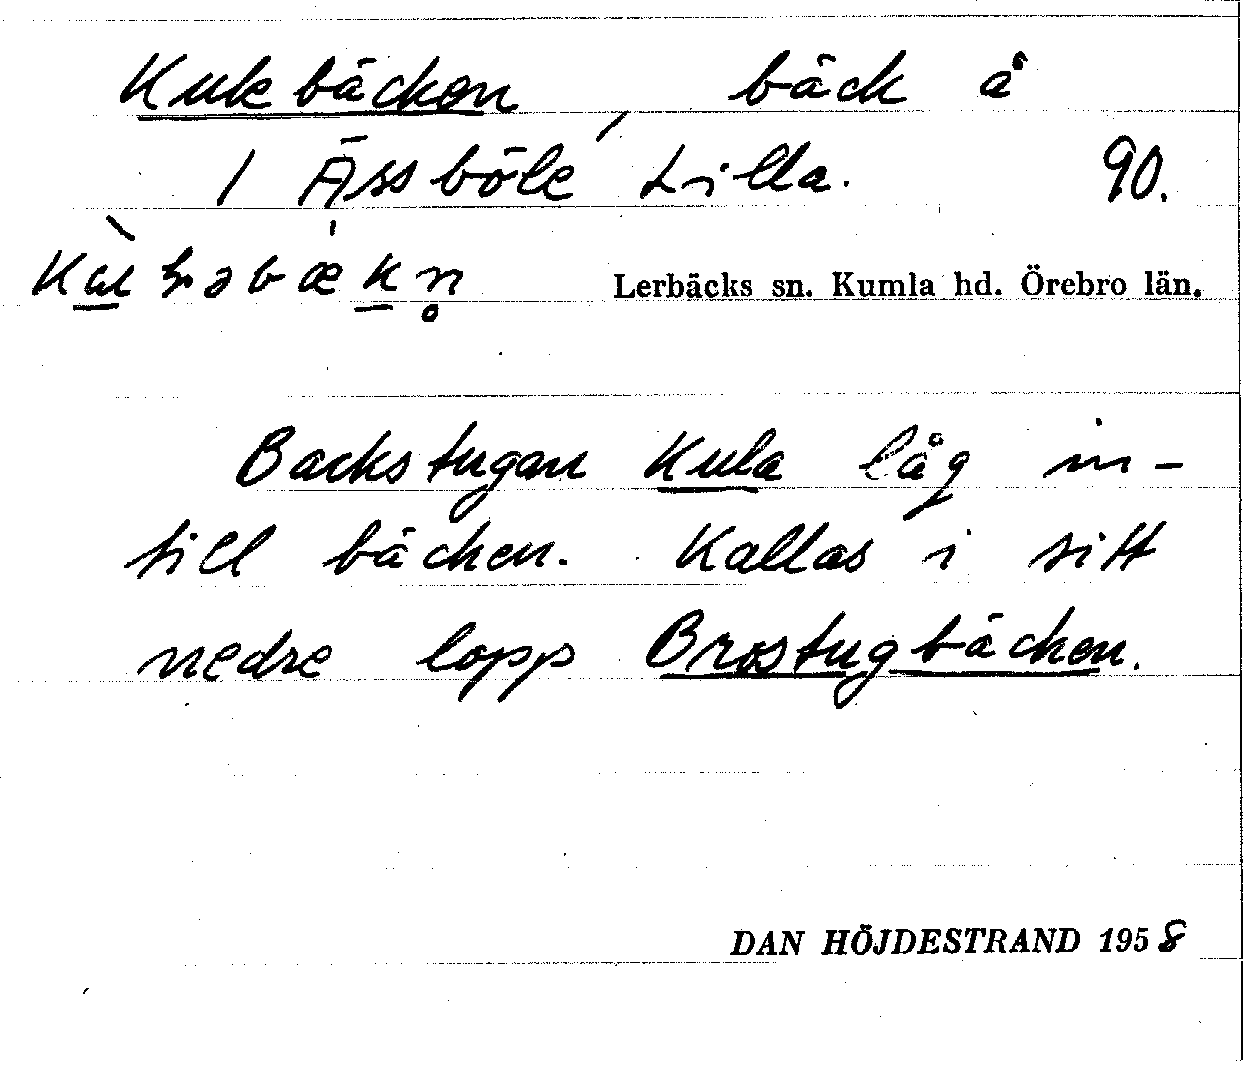 Kukbäcken, bäck å
1 Ässböle, Lilla. 90.
Lerbäcks sn. Kumla hd. Örebro län.
Backstugan Kula låg in-
till bäcken. Kallas i sitt
nedre lopp Brostugbäcken.
DAN HÖJDESTRAND 1958